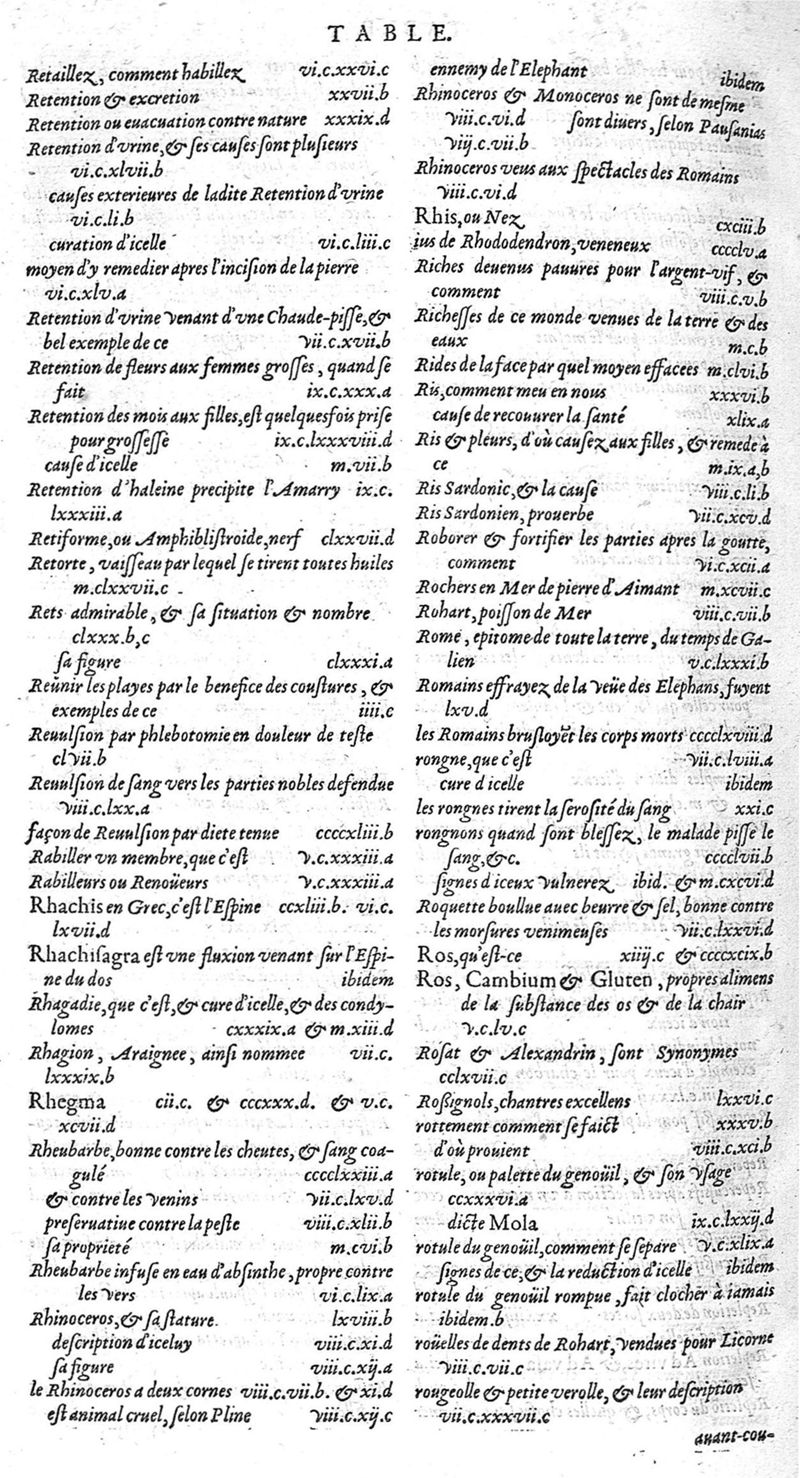 TABLE.
Retaillez, comment habillez vi.c.xxvi.c
Retention & excretion xxvii.b
Retention ou euacuation contre nature xxxix.d
Retention d'vrine, & ses causes sont plusieurs
vi.c.xlvii.b
causes exterieures de ladite Retention d'vrine
vi.c.li.b
curation d'icelle vi.c.liii.c
moyen d'y remedier apres l'incision de la pierre
vi.c.xlv.a
Retention d'vrine venant d'vne Chaude-pisse, &
bel exemple de ce vii.c.xvii.b
Retention de fleurs aux femmes grosses, quand se
fait ix.c.xxx.a
Retention des mois aux filles, est quelquesfois prise
pour grossesse ix.c.lxxxviii.d
cause d'icelle m.vii.b
Retention d'haleine precipite l'Amarry ix.c.
lxxxiii.a
Retiforme, ou Amphiblistroide, nerf clxxvii.d
Retorte, vaisseau par lequel se tirent toutes huiles
m.clxxvii.c
Rets admirable, & sa situation & nombre
clxxx.b,c
sa figure clxxxi.a
Reünir les playes par le benefice des coustures, &
exemples de ce iiii.c
Reuulsion par phlebotomie en douleur de teste
clvii.b
Reuulsion de sang vers les parties nobles defendue
viii.c.lxx.a
façon de Reuulsion par diete tenue ccccxliii.b
Rabiller vn membre, que c'est v.c.xxxiii.a
Rabilleurs ou Renoüeurs v.c.xxxiii.a
Rhachis en Grec, c'est l'Espine ccxliii.b. vi.c.
lxvii.d
Rhachisagra est vne fluxion venant sur l'Espi-
ne du dos ibidem
Rhagadie, que c'est, & cure d'icelle, & des condy-
lomes cxxxix.a & m.xiii.d
Rhagion, Araignee, ainsi nommee vii.c.
lxxxix.b
Rhegma cii.c. & cccxxx.d. & v.c.
xcvii.d
Rheubarbe, bonne contre les cheutes, & sang coa-
gulé cccclxxiii.a
& contre les venins vii.c.lxv.d
preseruatiue contre la peste viii.c.xlii.b
sa proprieté m.cvi.b
Rheubarbe infuse en eau d'absinthe, propre contre
les vers vi.c.lix.a
Rhinoceros, & sa stature. lxviii.b
description d'iceluy viii.c.xi.d
sa figure viii.c.xij.a
le Rhinoceros a deux cornes viii.c.vii.b. & xi.d
est animal cruel, selon Pline viii.c.xij.c
ennemy de l'Elephant ibidem
Rhinoceros & Monoceros ne sont de mesme
viii.c.vi.d sont diuers, selon Pausanias
viij.c.vii.b
Rhinoceros veus aux spectacles des Romains
viii.c.vi.d
Rhis, ou Nez cxciii.b
ius de Rhododendron, veneneux cccclv.a
Riches deuenus pauures pour l'argent-vif, &
comment viii.c.v.b
Richesses de ce monde venues de la terre & des
eaux m.c.b
Rides de la face par quel moyen effacees m.clvi.b
Ris, comment meu en nous xxxvi.b
cause de recouurer la santé xlix.a
Ris & pleurs, d'où causez aux filles, & remede à
ce m.ix.a,b
Ris Sardonic, & la cause viii.c.li.b
Ris Sardonien, prouerbe vii.c.xcv.d
Roborer & fortifier les parties apres la goutte,
comment vi.c.xcii.a
Rochers en Mer de pierre d'Aimant m.xcvii.c
Rohart, poisson de Mer viii.c.vii.b
Rome, epitome de toute la terre, du temps de Ga-
lien v.c.lxxxi.b
Romains effrayez de la veüe des Elephans, fuyent
lxv.d
les Romains brusloyēt les corps morts cccclxviii.d
rongne, que c'est vii.c.lviii.a
cure d'icelle ibidem
les rongnes tirent la serosité du sang xxi.c
rongnons quand sont blessez, le malade pisse le
sang, &c. cccclvii.b
signes d'iceux vulnerez ibid. & m.cxcvi.d
Roquette boullue auec beurre & sel, bonne contre
les morsures venimeuses vii.c.lxxvi.d
Ros, qu'est-ce xiiij.c & ccccxcix.b
Ros, Cambium & Gluten, propres alimens
de la substance des os & de la chair
v.c.lv.c
Rosat & Alexandrin, sont Synonymes
cclxvii.c
Roßignols, chantres excellens lxxvi.c
rottement comment se faict xxxv.b
d'où prouient viii.c.xci.b
rotule, ou palette du genoüil, & son vsage
ccxxxvi.a
dicte Mola ix.c.lxxij.d
rotule du genoüil, comment se separe v.c.xlix.a
signes de ce, & la reduction d'icelle ibidem
rotule du genoüil rompue, fait clocher à iamais
ibidem.b
roüelles de dents de Rohart, vendues pour Licorne
viii.c.vii.c
rougeolle & petite verolle, & leur description
vii.c.xxxvii.c
auant-cou-